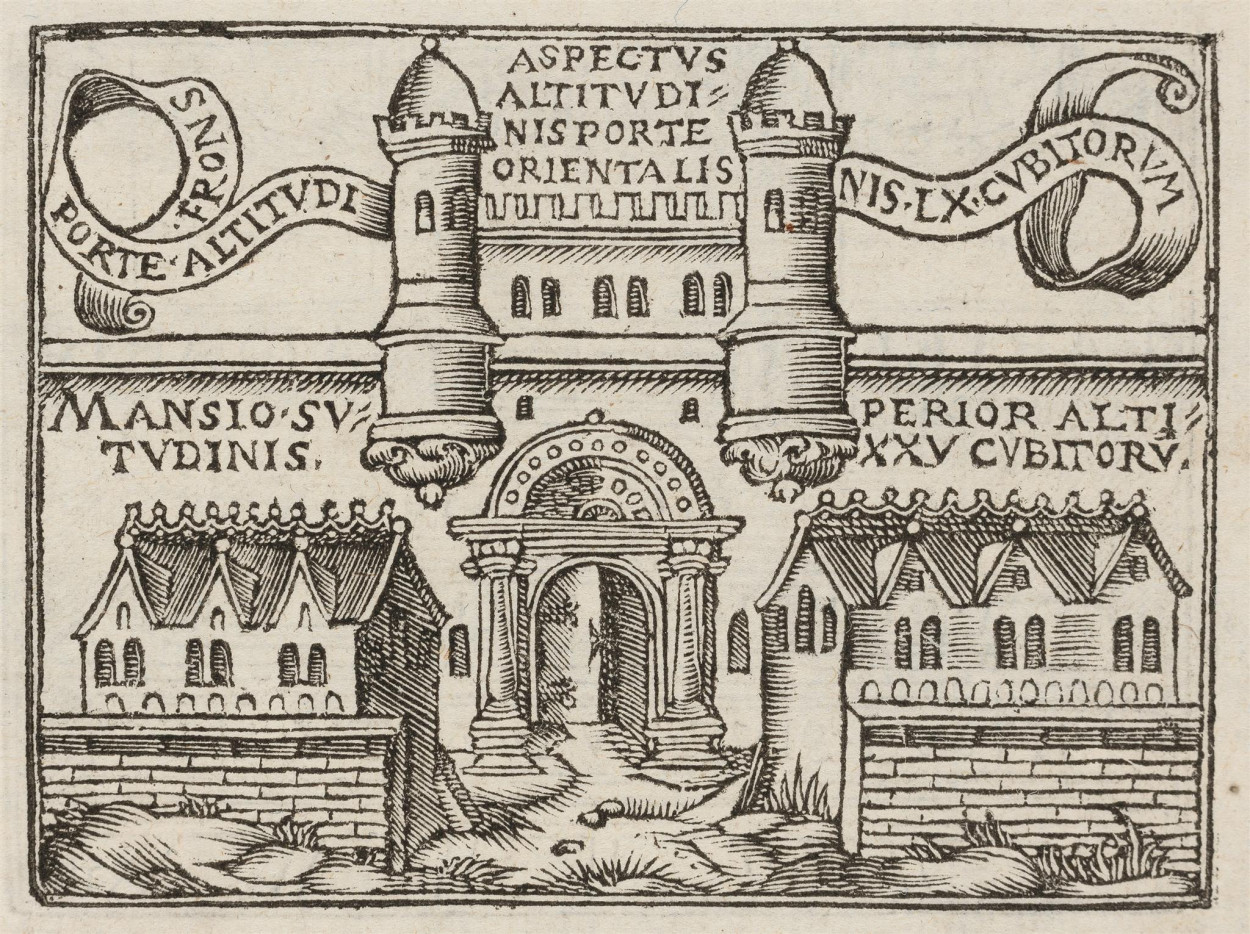 ASPECTVS
ALTITVDI⸗
NIS PORTE
ORIENTALIS
FRONS
PORTE·ALTITVDI
NIS·LX·CVBITORVM
MANSIO·SV⸗
TVDINIS.
PERIOR ALTI⸗
XXV CVBITORṼ.